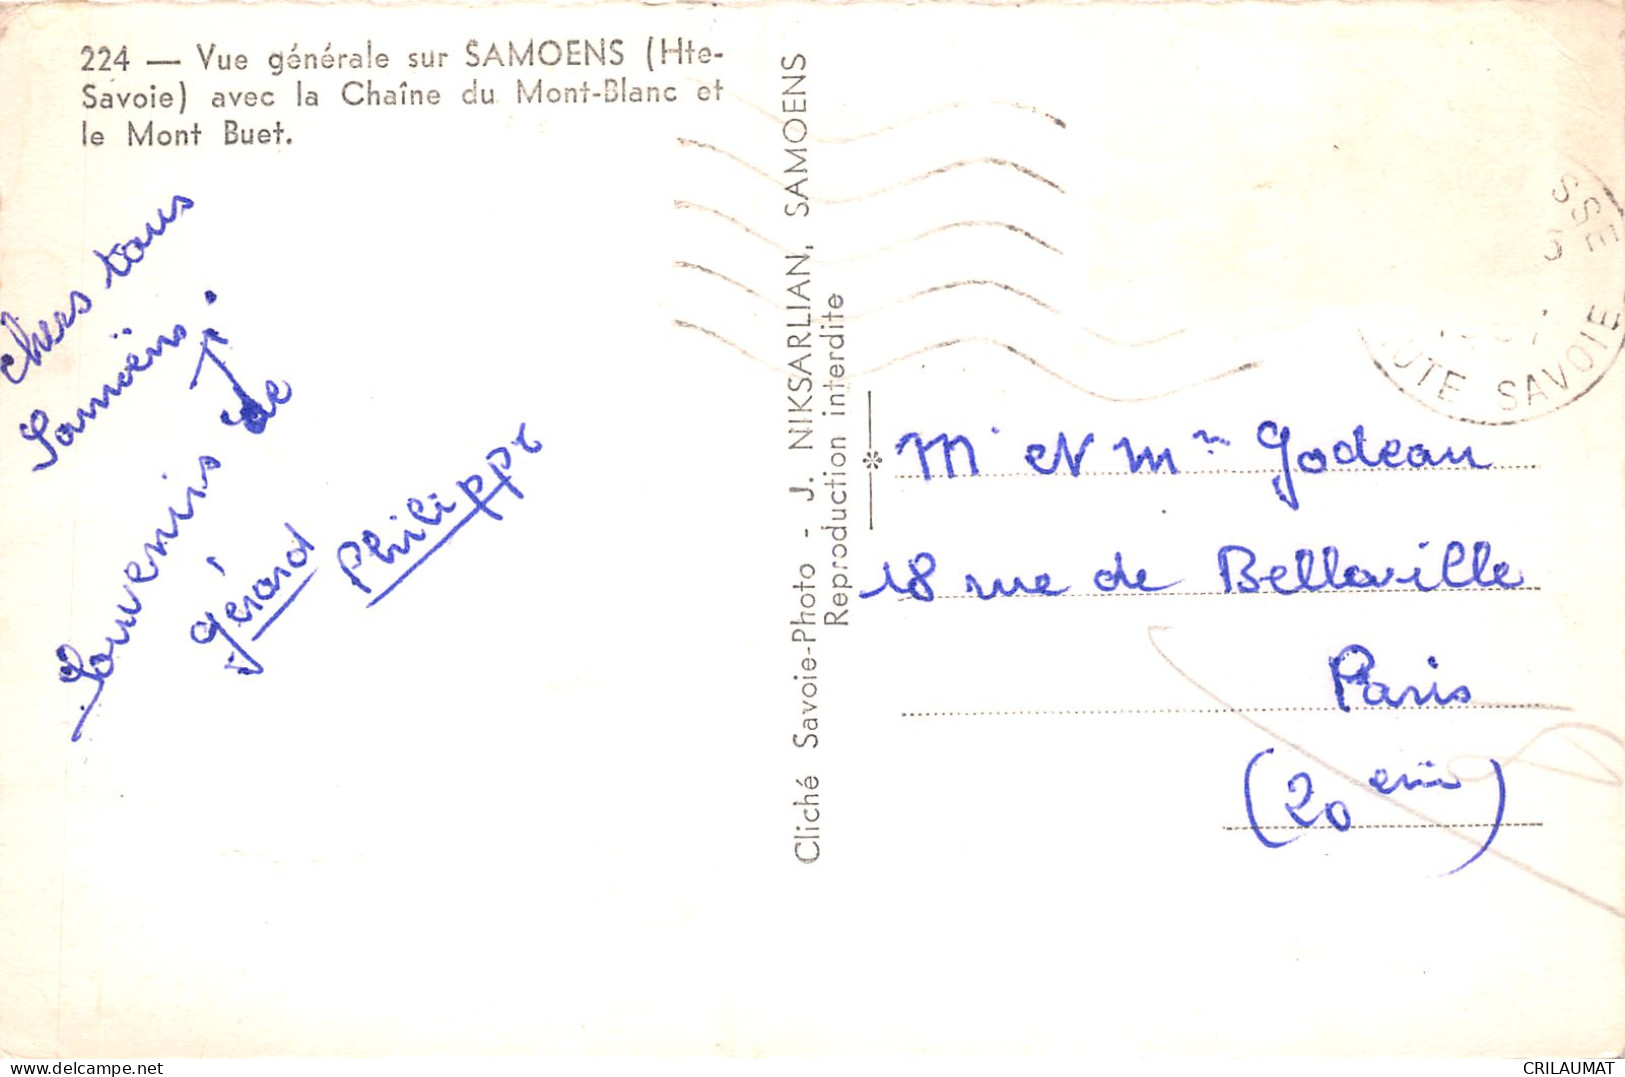 224 — Vue générale sur SAMOENS (Hte-
Savoie) avec la Chaîne du Mont-Blanc et
le Mont Buet.
chers tous
Souvenirs de
Samoëns
Gérard
Philippe
Cliché Savoie-Photo - J. NIKSARLIAN, SAMOENS
Reproduction interdite
SSE
UTE SAVOIE
Mr et Mme Godeau
18 rue de Belleville
Paris
(20 eme)
CRILAUMAT
delcampe.net